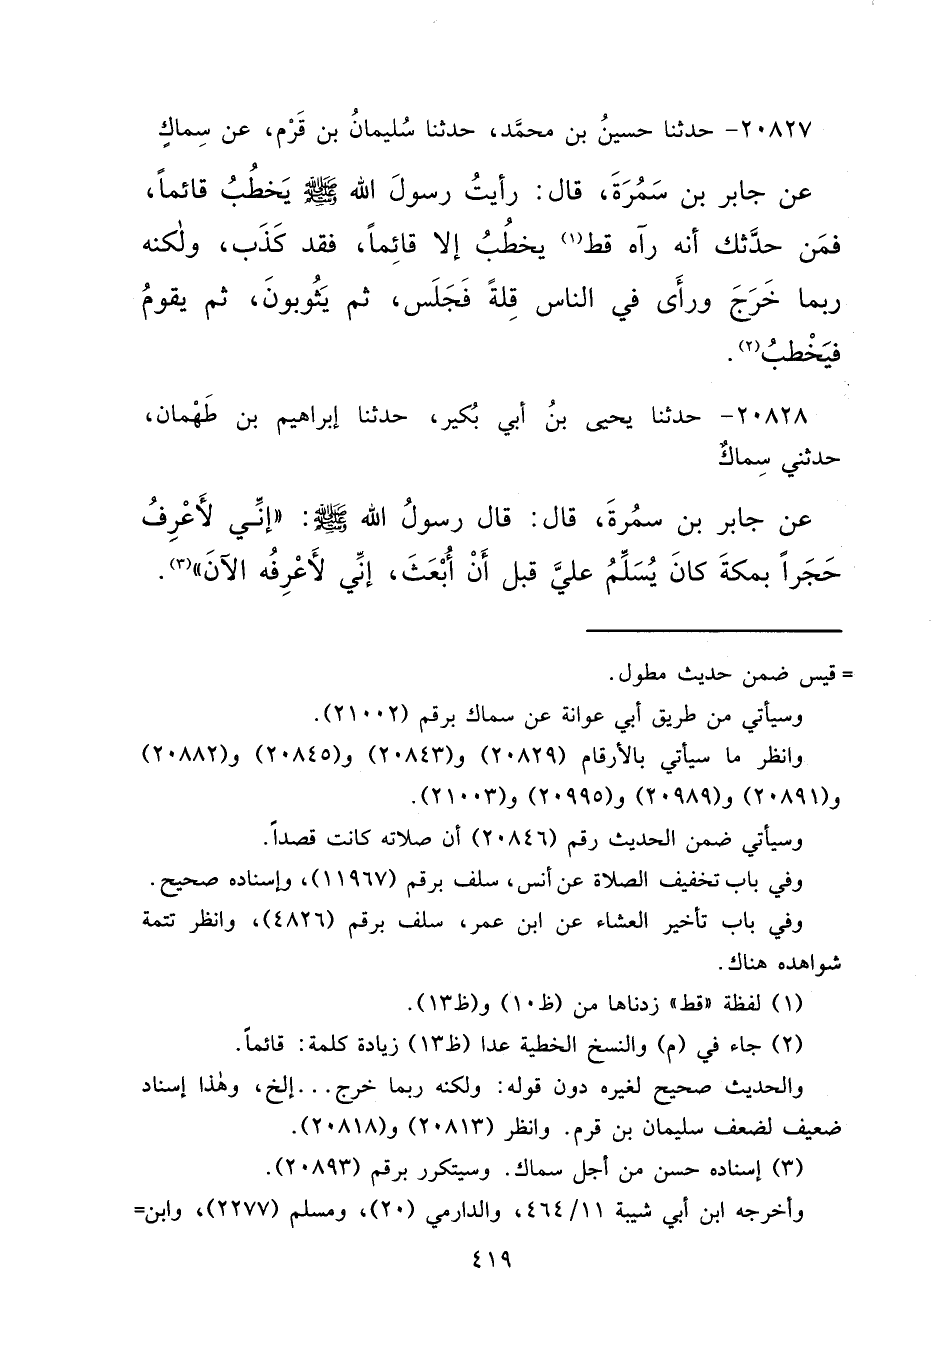 ٢٠٨٢٧- حدثنا حسينُ بن محمَّد، حدثنا سُليمانُ بن قَرْم، عن سِماكٍ
عن جابر بن سَمُرَةَ، قال: رأيتُ رسولَ الله ﷺ يَخطُبُ قائماً،
فمَن حدَّثك أنه رآه قط(١) يخطُبُ إلا قائِماً، فقد كَذَب، ولٰكنه
ربما خَرَجَ ورأَى في الناس قِلةً فَجَلَس، ثم يَثُوبونَ، ثم يقومُ
فيَخْطبُ(٢).
٢٠٨٢٨- حدثنا يحيى بنُ أبي بُكير، حدثنا إبراهيم بن طَهْمان،
حدثني سِماكٌ
عن جابر بن سمُرةَ، قال: قال رسولُ الله ﷺ: «إنِّي لأَعْرِفُ
حَجَراً بمكةَ كانَ يُسَلِّمُ عليَّ قبل أَنْ أُبْعَثَ، إنِّي لأَعْرِفُه الآنَ»(٣).
= قيس ضمن حديث مطول.
وسيأتي من طريق أبي عوانة عن سماك برقم (٢١٠٠٢).
وانظر ما سيأتي بالأرقام (٢٠٨٢٩) و(٢٠٨٤٣) و(٢٠٨٤٥) و(٢٠٨٨٢)
و(٢٠٨٩١) و(٢٠٩٨٩) و(٢٠٩٩٥) و(٢١٠٠٣).
وسيأتي ضمن الحديث رقم (٢٠٨٤٦) أن صلاته كانت قصداً.
وفي باب تخفيف الصلاة عن أنس، سلف برقم (١١٩٦٧)، وإسناده صحيح.
وفي باب تأخير العشاء عن ابن عمر، سلف برقم (٤٨٢٦)، وانظر تتمة
شواهده هناك.
(١) لفظة «قط» زدناها من (ظ١٠) و(ظ١٣).
(٢) جاء في (م) والنسخ الخطية عدا (ظ١٣) زيادة كلمة: قائماً.
والحديث صحيح لغيره دون قوله: ولكنه ربما خرج...إلخ، وهٰذا إسناد
ضعيف لضعف سليمان بن قرم. وانظر (٢٠٨١٣) و(٢٠٨١٨).
(٣) إسناده حسن من أجل سماك. وسيتكرر برقم (٢٠٨٩٣).
وأخرجه ابن أبي شيبة ٤٦٤/١١، والدارمي (٢٠)، ومسلم (٢٢٧٧)، وابن=
٤١٩